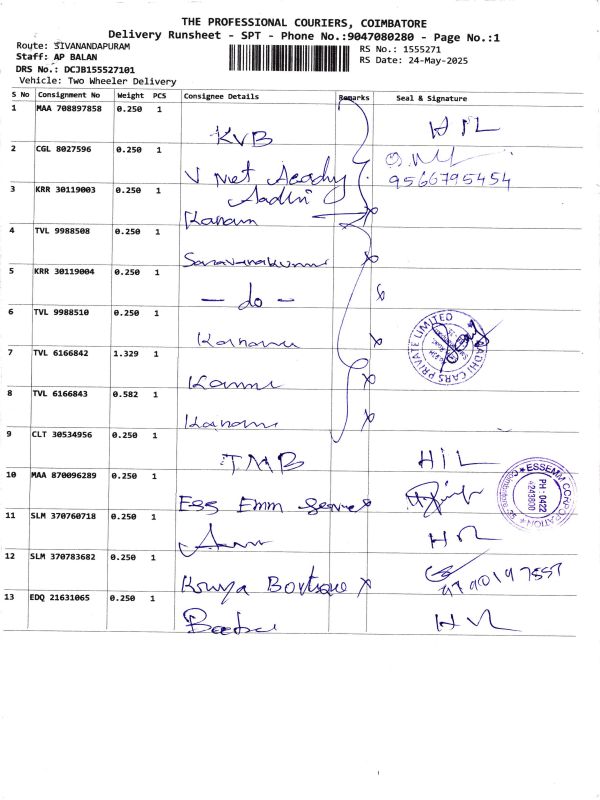 THE PROFESSIONAL COURIERS, COIMBATORE
Delivery Runsheet - SPT - Phone No.:9047080280 - Page No.:1
Route: SIVANANDAPURAM
Staff: AP BALAN
DRS No.: DCJB155527101
Vehicle: Two Wheeler Delivery
RS No.: 1555271
RS Date: 24-May-2025
S No Consignment No Weight PCS Consignee Details Remarks Seal & Signature
1 MAA 708897858 0.250 1 KVB
2 CGL 8027596 0.250 1 V Net
9566795454
3 KRR 30119003 0.250 1
4 TVL 9988508 0.250 1 Saravanakumar
5 KRR 30119004 0.250 1 - do -
6 TVL 9988510 0.250 1
7 TVL 6166842 1.329 1
8 TVL 6166843 0.582 1
AADHI CARS PRIVATE LIMITED
9 CLT 30534956 0.250 1 TMB
10 MAA 870096289 0.250 1 Ess Emm
ESSEMM CORPORATION
PH : 0422
11 SLM 370760718 0.250 1
12 SLM 370783682 0.250 1
13 EDQ 21631065 0.250 1